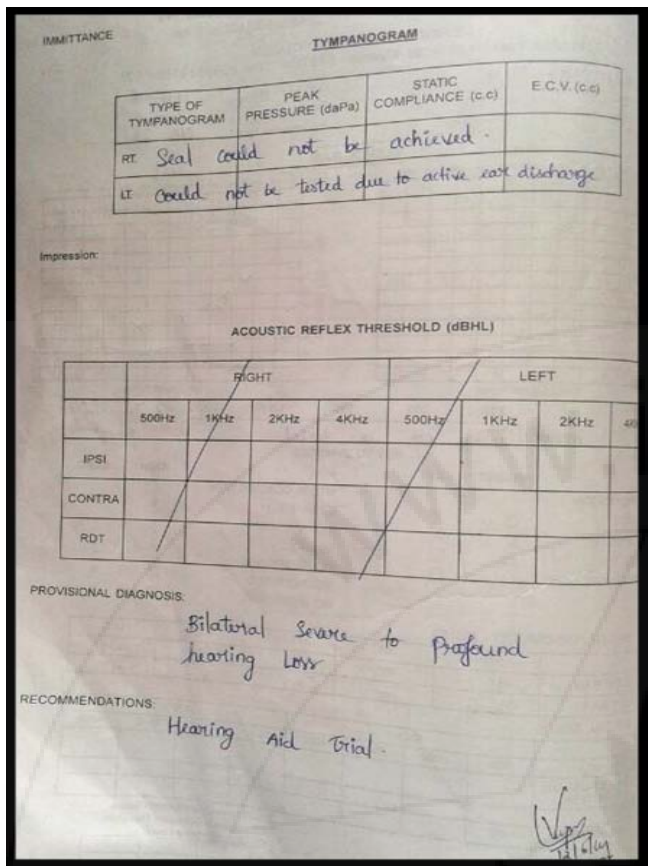 IMMITTANCE
TYMPANOGRAM
TYPE OF TYMPANOGRAM PEAK PRESSURE (daPa) STATIC COMPLIANCE (c.c) E.C.V. (c.c)
RT. Seal could not be achieved.
LT. Could not be tested due to active ear discharge
Impression:
ACOUSTIC REFLEX THRESHOLD (dBHL)
RIGHT LEFT
500Hz 1KHz 2KHz 4KHz 500Hz 1KHz 2KHz
IPSI
CONTRA
RDT
PROVISIONAL DIAGNOSIS:
Bilateral Severe to Profound
hearing Loss
RECOMMENDATIONS:
Hearing Aid Trial.